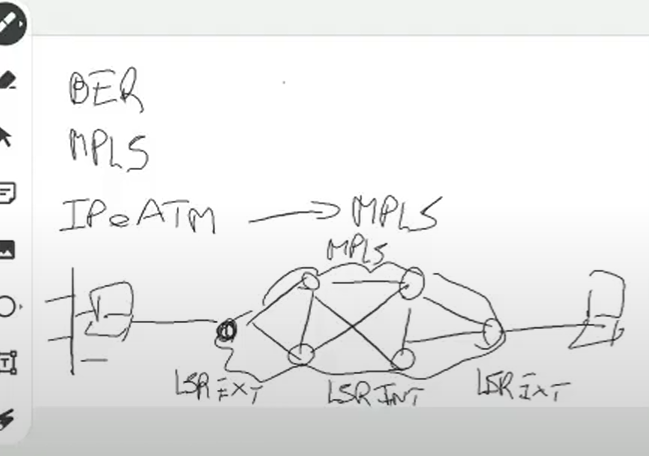 BER
MPLS
IP e ATM → MPLS
MPLS
LSR EXT
LSR INT
LSR EXT